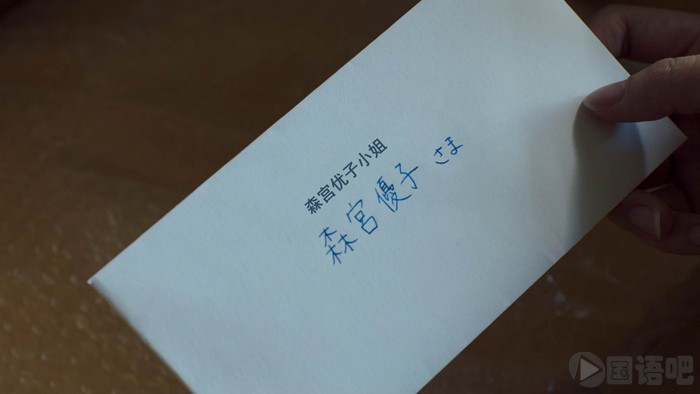 森宫优子小姐
森宮優子さま
国语吧